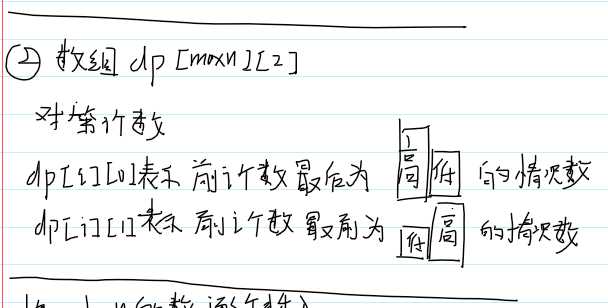 ② 数组 dp[maxn][2]
对第i个数
dp[i][0]表示 前i个数最后为 高低 的情况数
dp[i][1]表示 前i个数最前为 低高 的情况数